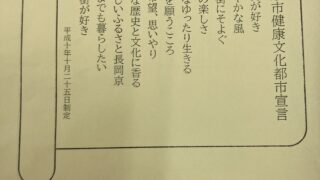 市健康文化都市宣言
が好き
かな風
街にそよぐ
の楽しさ
なゆったり生きる
を願うこころ
望、思いやり
な歴史と文化に香る
しいふるさと長岡京
までも暮らしたい
街が好き
平成十年十月二十五日制定